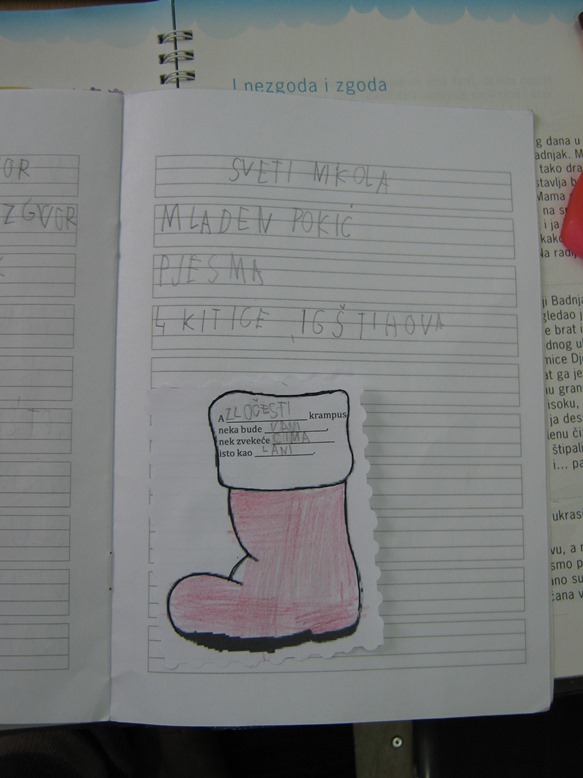 I nezgoda i zgoda
OR
ZGVOR
SVETI MKOLA
MLADEN POKIĆ
PJESMA
4 KITICE IGŠTIHOVA
A ZLOČESTI krampus
neka bude VANI,
nek zvekeće CIMA
isto kao LANI.
g dana u
adnjak. M
tako dra
stavlja b
Mama
na sr
i ja
kako
Na radij
ji Badnja
gledao j
e brat i
dnog u
nice Dj
at ga je
u gran
isoku,
ja des
lenu či
štipali
i... pa
ukrasi
vu, a n
smo p
ano su